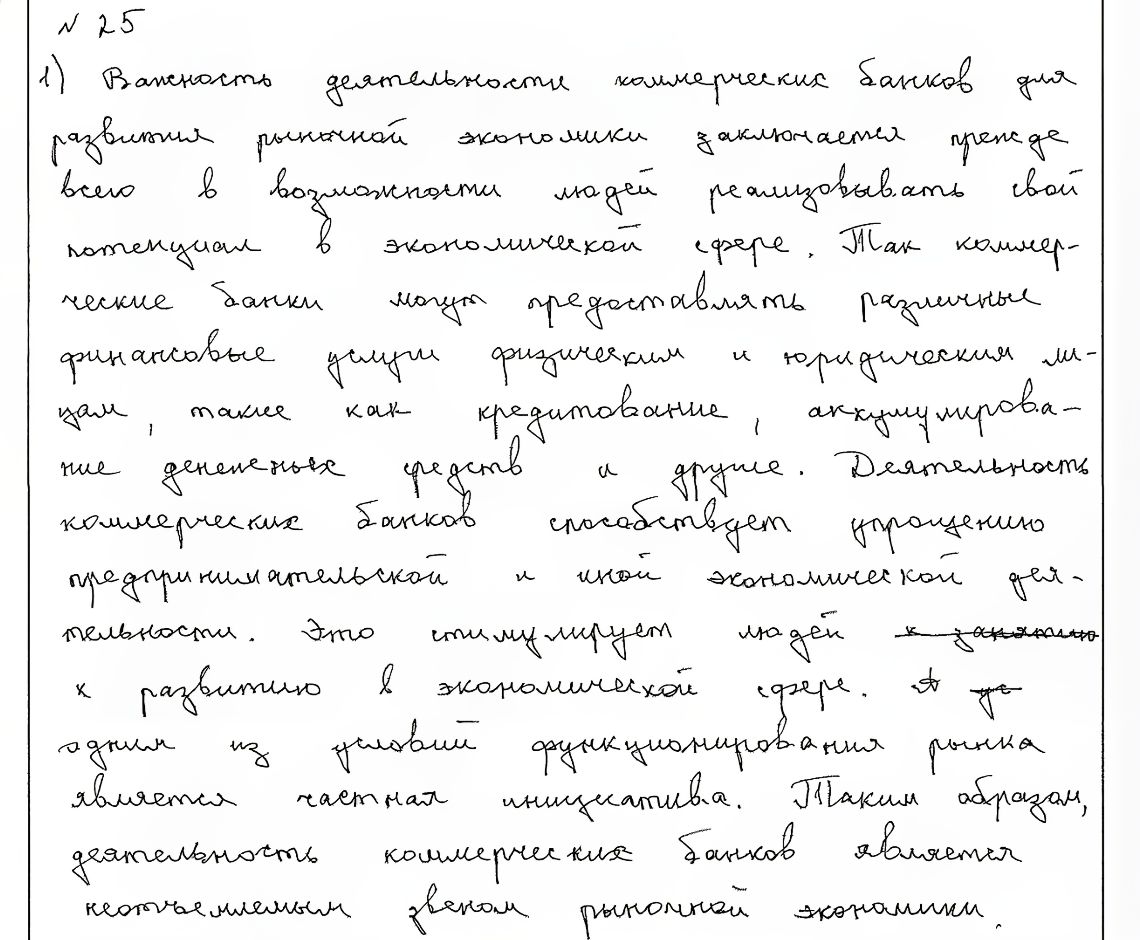 № 25
1) Важность деятельности коммерческих банков для
развития рыночной экономики заключается прежде
всего в возможности людей реализовывать свой
потенциал в экономической сфере. Так коммер-
ческие банки могут предоставлять различные
финансовые услуги физическим и юридическим ли-
цам, такие как кредитование, аккумулирова-
ние денежных средств и другие. Деятельность
коммерческих банков способствует упрощению
предпринимательской и иной экономической дея-
тельности. Это стимулирует людей к занятию
к развитию в экономической сфере. А ус
одним из условий функционирования рынка
является частная инициатива. Таким образом,
деятельность коммерческих банков является
неотъемлемым звеном рыночной экономики.